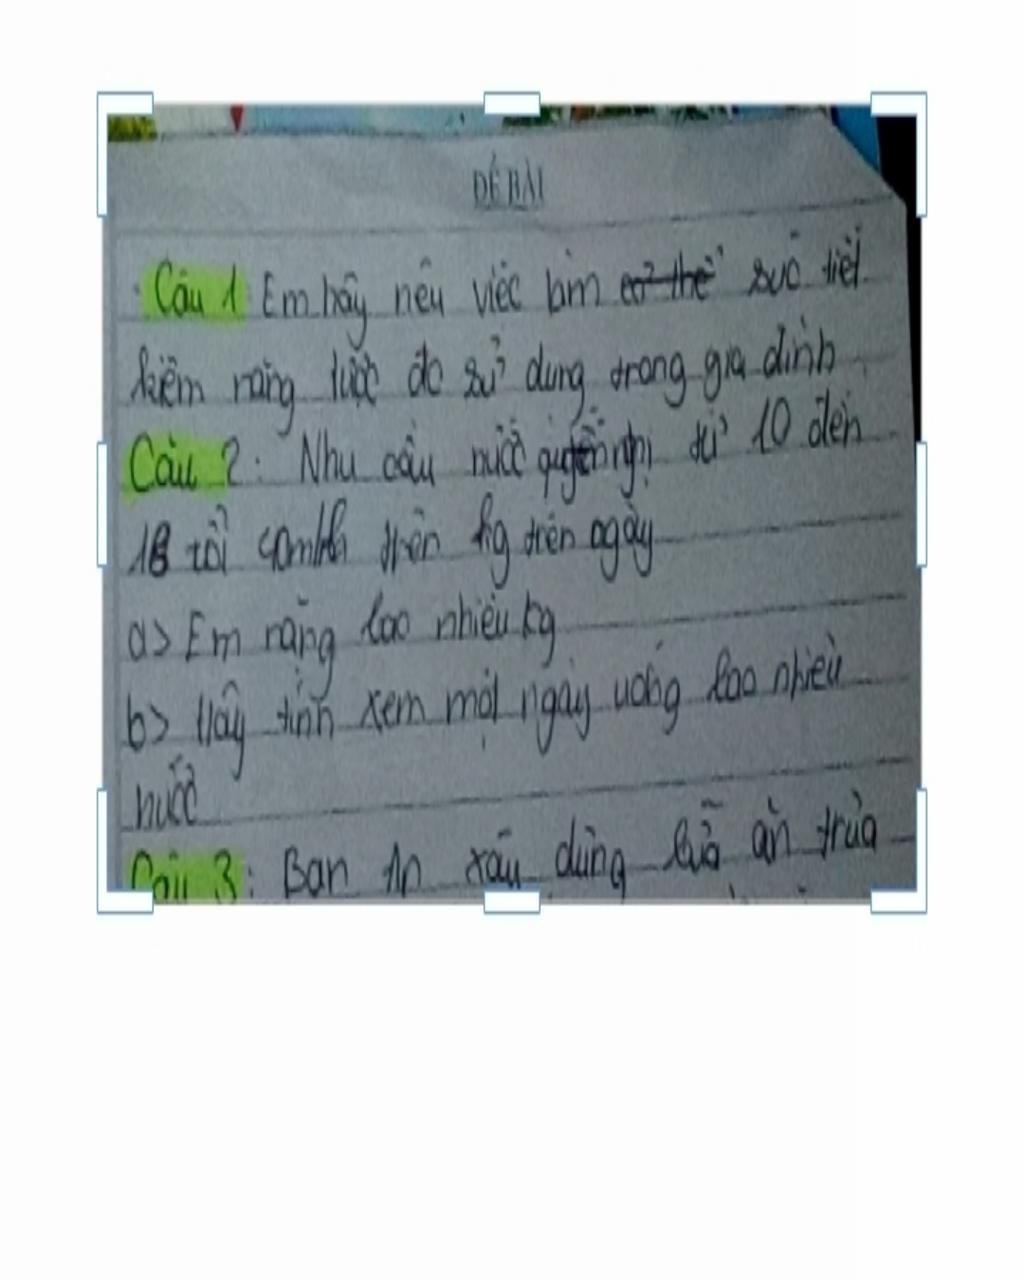 ĐỀ BÀI
Câu 1 Em hãy nêu việc làm tiết
kiệm năng lượng sử dụng trong gia đình
Câu 2: Nhu cầu nước từ 10 đến
18 trên kg trên ngày
a> Em nặng bao nhiêu kg
b> Hãy tính xem một ngày uống bao nhiêu
nước
Câu 3: Bạn xây dựng bữa ăn trưa